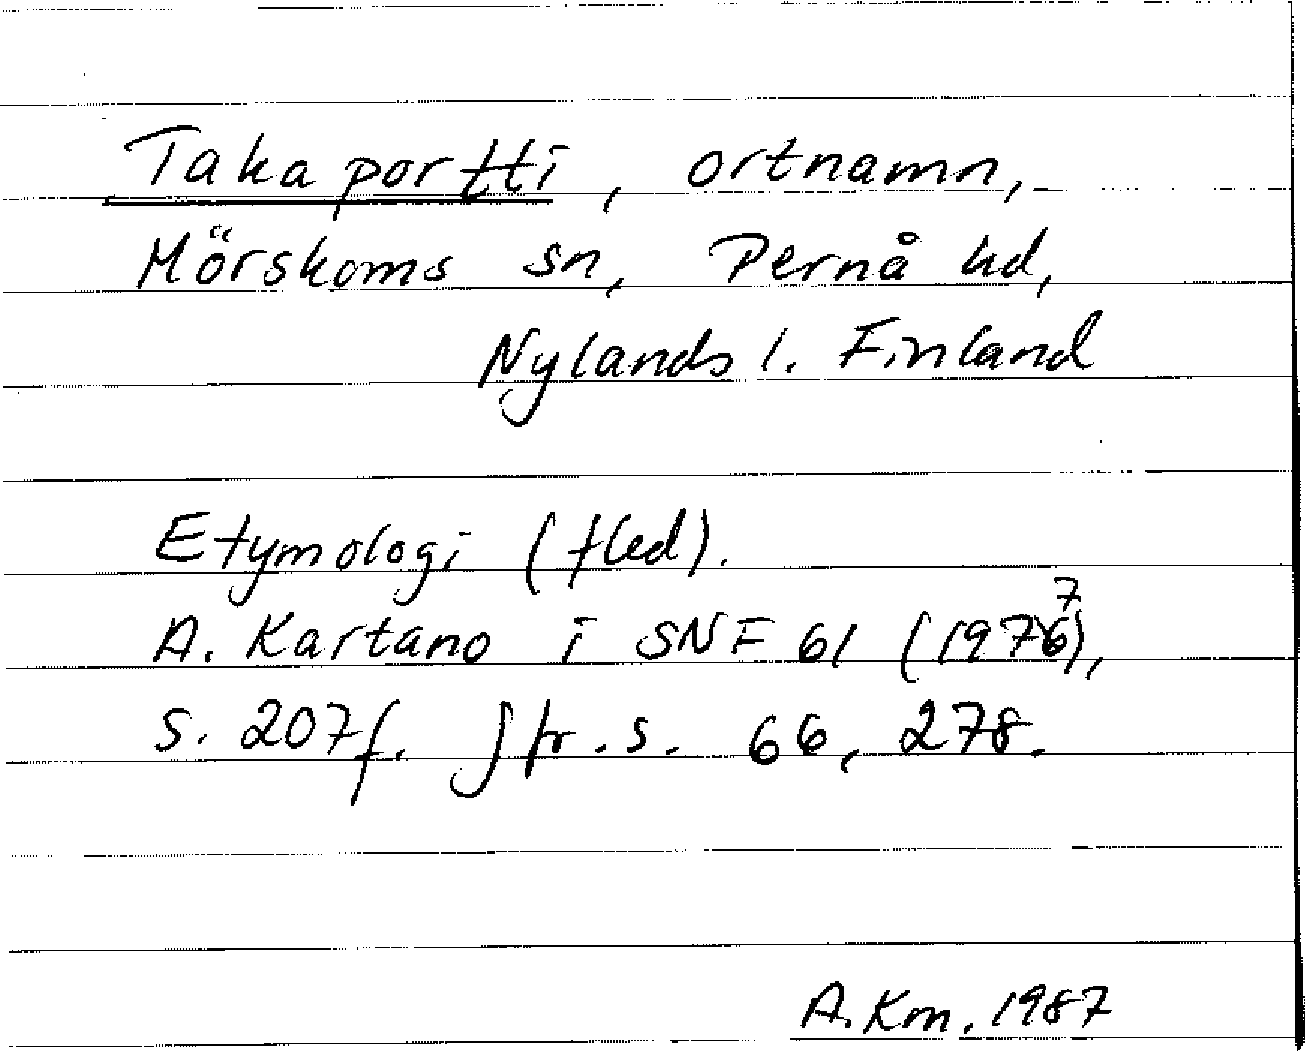 Takaportti, ortnamn,
Mörskoms sn, Pernå hd,
Nylands l. Finland
Etymologi (fled).
A. Kartano i SNF 61 (1977),
s. 207f. Jfr. s. 66, 278.
A. Km. 1987